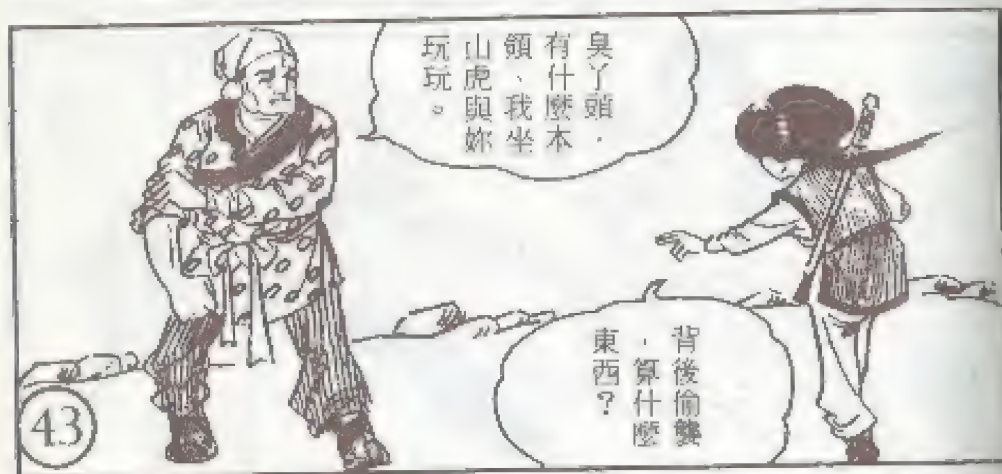 臭丫頭，
有什麼本
領、我坐
山虎與妳
玩玩。
背後偷襲
，算什麼
東西？
43